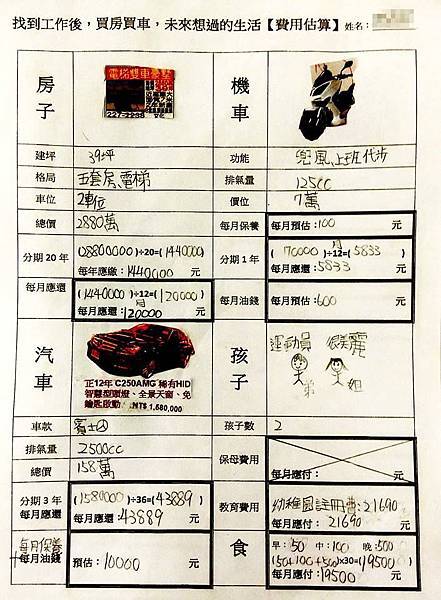 找到工作後，買房買車，未來想過的生活【費用估算】姓名：
房子
電梯雙車豪墅
機車
建坪 39坪
功能 兜風、上班代步
格局 五套房、電梯
排氣量 125cc
車位 2車位
價位 7萬
總價 2880萬
每月保養 每月預估：100 元
分期20年 (28800000)÷20=(1440000)
每年應繳：1440000 元
分期1年 (70000)÷12=(5833)
每月應還：5833 元
每月應還 (1440000)÷12=(120000)
每月應還：120000 元
每月油錢 每月預估：600 元
汽車
正12年 C250AMG 稀有HID
智慧型頭燈、全景天窗、免
鑰匙啟動 NT$ 1,580,000
孩子
運動員 很美麗
弟 姐
車款 賓士
孩子數 2
排氣量 2500cc
保母費用 每月應付： 元
總價 158萬
分期3年
每月應還
(1580000)÷36=(43889)
每月應還：43889 元
教育費用 幼稚園註冊費：21690
每月應付：21690 元
每月保養
每月油錢
預估：10000 元
食
早：50 中：100 晚：500
(50+100+500)×30=(19500)
每月應付：19500 元